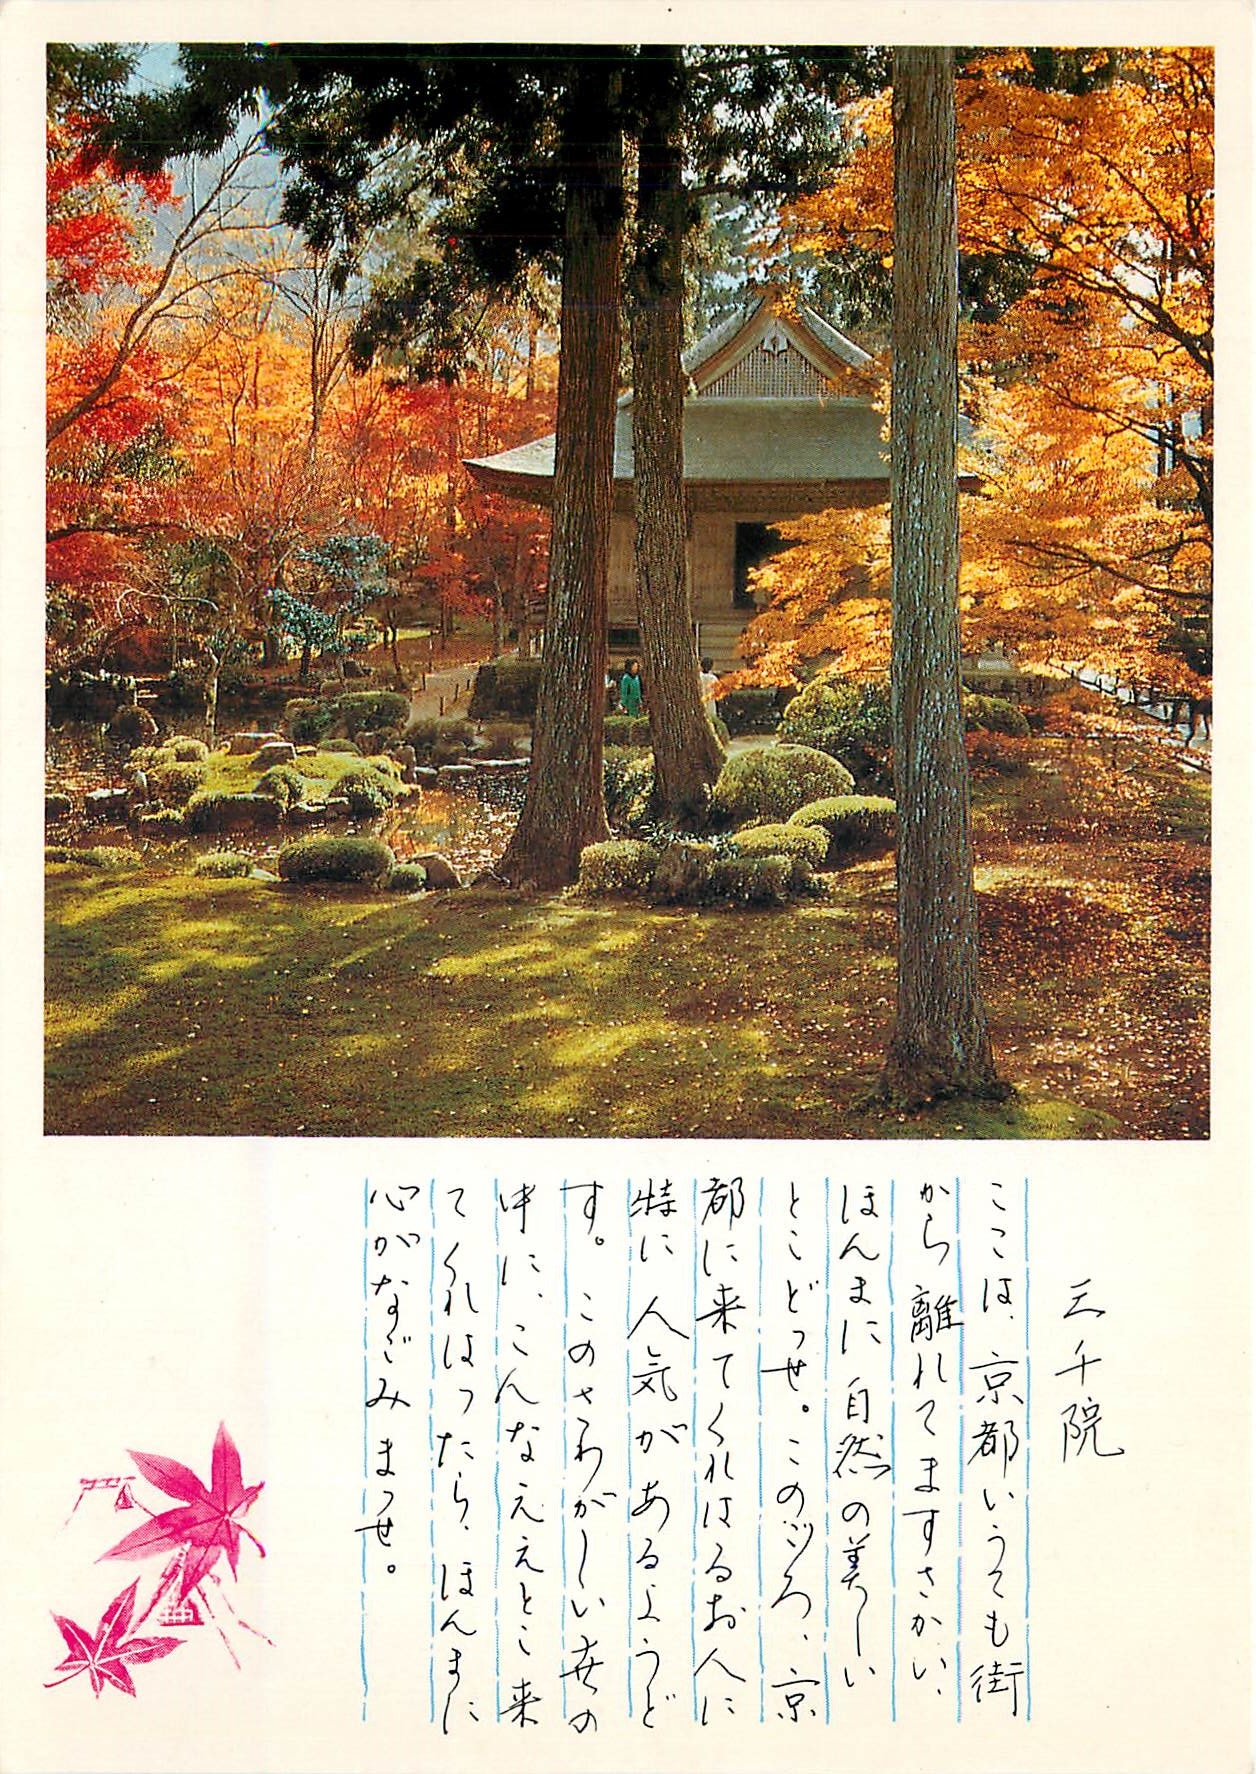 三千院
ここは、京都いうても街
から離れてますさかい、
ほんまに自然の美しい
とこどっせ。このごろ、京
都に来てくれはるお人に
特に人気があるようど
す。このさわがしい世の
中に、こんなええとこ来
てくれはったら、ほんまに
心がなごみまっせ。